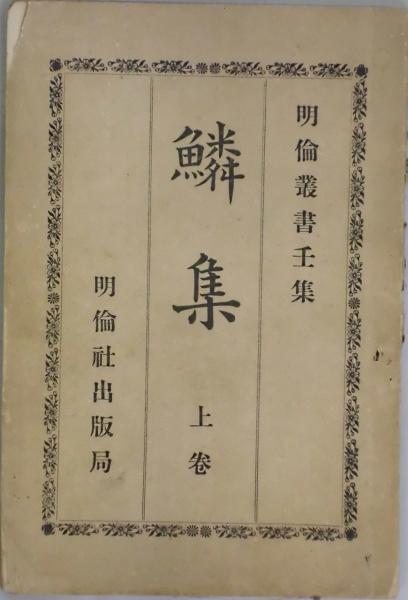 明倫叢書壬集
鱗集
上卷
明倫社出版局